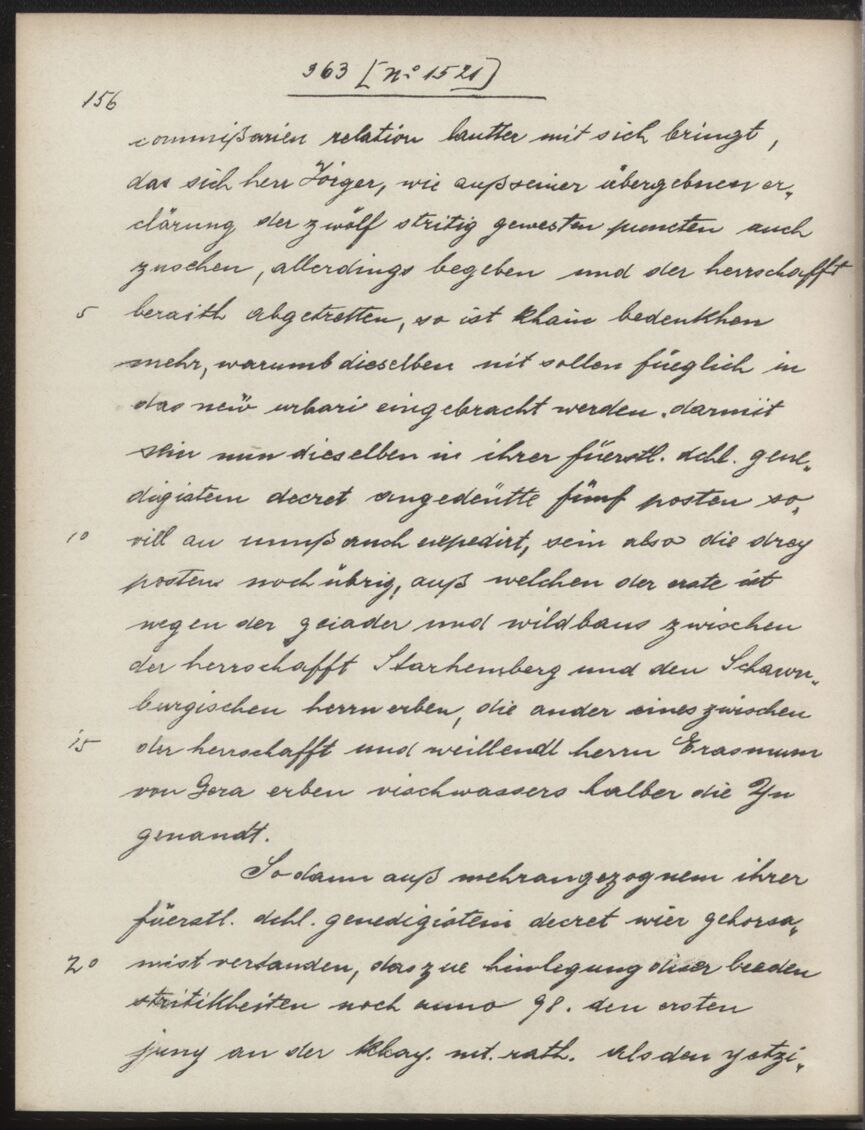 363 [N° 1521]
156
commißarien relation lautter mit sich bringt,
das sich herr Jörger, wie auß seiner übergebnen er„
clärung der zwölf stritig gewesten puncten auch
zusehen, allerdings begeben und der herrschafft
5 beraith abgetretten, so ist khain bedenkhen
mehr, warumb dieselben nit sollen füeglich in
das neü urbari eingebracht werden. darmit
sein nun dieselben in ihrer füerstl. dchl. gene„
digistem decret angedeütte fünf posten so„
10 vill an unnß auch expedirt, sein also die drey
posten noch übrig, auß welchen der erste ist
wegen der geiader und wildbans zwischen
der herrschafft Starhemberg und den Schawn„
burgischen herrn erben, die ander eines zwischen
15 der herrschafft und weillendt herrn Erasmum
von Gera erben vischwassers halber die Yn
genandt.
So dann auß mehrangezognem ihrer
füerstl. dchl. genedigistem decret wier gehorsa„
20 mist verstanden, das zue hinlegung diser beeden
stritikheiten noch anno 98. den ersten
juny an der khay. mt. rath. als den yetzi„